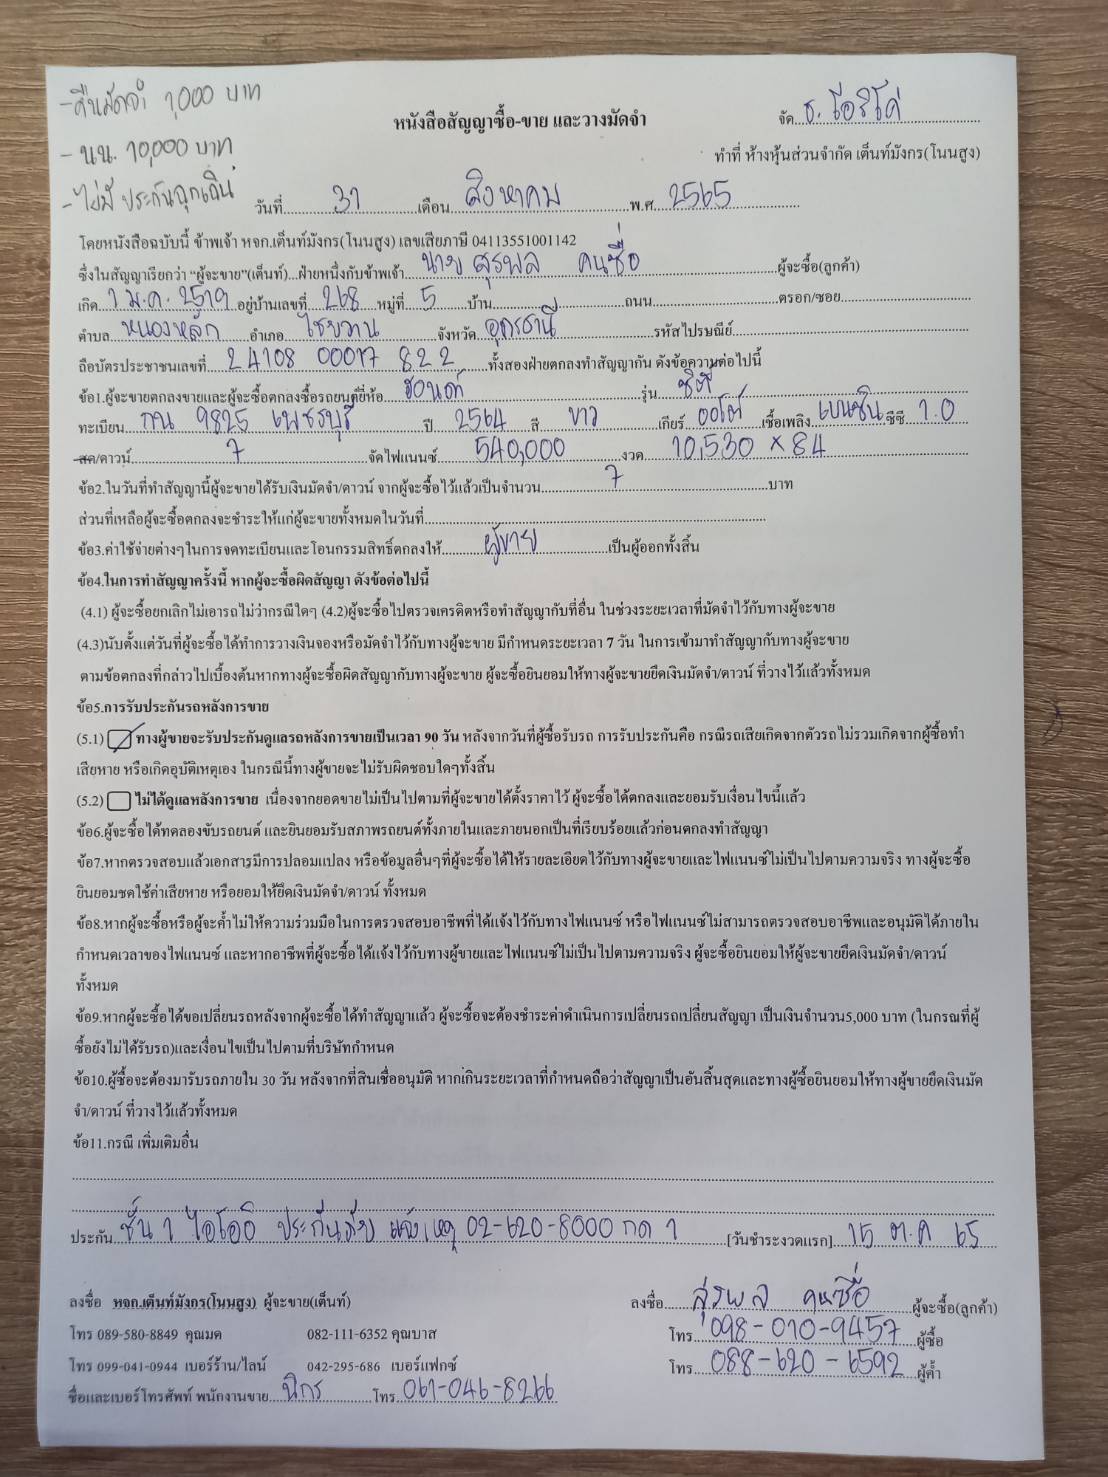 -คืนมัดจำ 1,000 บาท
- นน. 10,000 บาท
-ไม่มี ประกันฉุกเฉิน
หนังสือสัญญาซื้อ-ขาย และวางมัดจำ
จัด ธ.
ทำที่ ห้างหุ้นส่วนจำกัด เต็นท์มังกร(โนนสูง)
วันที่ 31 เดือน สิงหาคม พ.ศ. 2565
โดยหนังสือฉบับนี้ ข้าพเจ้า หจก.เต็นท์มังกร(โนนสูง) เลขเสียภาษี 04113551001142
ซึ่งในสัญญาเรียกว่า "ผู้จะขาย"(เต็นท์)...ฝ่ายหนึ่งกับข้าพเจ้า นาย สุรพล คนซื่อ ผู้จะซื้อ(ลูกค้า)
เกิด 1 ม.ค. 2519 อยู่บ้านเลขที่ 268 หมู่ที่ 5 บ้าน ถนน ตรอก/ซอย
ตำบล หนองหลัก อำเภอ ไชยวาน จังหวัด อุดรธานี รหัสไปรษณีย์
ถือบัตรประชาชนเลขที่ 24108 00017 822 ทั้งสองฝ่ายตกลงทำสัญญากัน ดังข้อความต่อไปนี้
ข้อ1.ผู้จะขายตกลงขายและผู้จะซื้อตกลงซื้อรถยนต์ยี่ห้อ ฮอนด้า รุ่น ซิตี้
ทะเบียน กน 9825 เพชรบุรี ปี 2564 สี ขาว เกียร์ ออโต้ เชื้อเพลิง เบนซิน ซีซี 1.0
สด/ดาวน์ 7 จัดไฟแนนซ์ 540,000 งวด 10,530 x 84
ข้อ2.ในวันที่ทำสัญญานี้ผู้จะขายได้รับเงินมัดจำ/ดาวน์ จากผู้จะซื้อไว้แล้วเป็นจำนวน 7 บาท
ส่วนที่เหลือผู้จะซื้อตกลงจะชำระให้แก่ผู้จะขายทั้งหมดในวันที่
ข้อ3.ค่าใช้จ่ายต่างๆในการจดทะเบียนและโอนกรรมสิทธิ์ตกลงให้ ผู้ขาย เป็นผู้ออกทั้งสิ้น
ข้อ4.ในการทำสัญญาครั้งนี้ หากผู้จะซื้อผิดสัญญา ดังข้อต่อไปนี้
(4.1) ผู้จะซื้อยกเลิกไม่เอารถไม่ว่ากรณีใดๆ (4.2)ผู้จะซื้อไปตรวจเครดิตหรือทำสัญญากับที่อื่น ในช่วงระยะเวลาที่มัดจำไว้กับทางผู้จะขาย
(4.3)นับตั้งแต่วันที่ผู้จะซื้อได้ทำการวางเงินจองหรือมัดจำไว้กับทางผู้จะขาย มีกำหนดระยะเวลา 7 วัน ในการเข้ามาทำสัญญากับทางผู้จะขาย
ตามข้อตกลงที่กล่าวไปเบื้องต้นหากทางผู้จะซื้อผิดสัญญากับทางผู้จะขาย ผู้จะซื้อยินยอมให้ทางผู้จะขายยึดเงินมัดจำ/ดาวน์ ที่วางไว้แล้วทั้งหมด
ข้อ5.การรับประกันรถหลังการขาย
(5.1) ทางผู้ขายจะรับประกันดูแลรถหลังการขายเป็นเวลา 90 วัน หลังจากวันที่ผู้ซื้อรับรถ การรับประกันคือ กรณีรถเสียเกิดจากตัวรถไม่รวมเกิดจากผู้ซื้อทำ
เสียหาย หรือเกิดอุบัติเหตุเอง ในกรณีนี้ทางผู้ขายจะไม่รับผิดชอบใดๆทั้งสิ้น
(5.2) ไม่ได้ดูแลหลังการขาย เนื่องจากยอดขายไม่เป็นไปตามที่ผู้จะขายได้ตั้งราคาไว้ ผู้จะซื้อได้ตกลงและยอมรับเงื่อนไขนี้แล้ว
ข้อ6.ผู้จะซื้อได้ทดลองขับรถยนต์ และยินยอมรับสภาพรถยนต์ทั้งภายในและภายนอกเป็นที่เรียบร้อยแล้วก่อนตกลงทำสัญญา
ข้อ7.หากตรวจสอบแล้วเอกสารมีการปลอมแปลง หรือข้อมูลอื่นๆที่ผู้จะซื้อได้ให้รายละเอียดไว้กับทางผู้จะขายและไฟแนนซ์ไม่เป็นไปตามความจริง ทางผู้จะซื้อ
ยินยอมชดใช้ค่าเสียหาย หรือยอมให้ยึดเงินมัดจำ/ดาวน์ ทั้งหมด
ข้อ8.หากผู้จะซื้อหรือผู้จะค้ำไม่ให้ความร่วมมือในการตรวจสอบอาชีพที่ได้แจ้งไว้กับทางไฟแนนซ์ หรือไฟแนนซ์ไม่สามารถตรวจสอบอาชีพและอนุมัติได้ภายใน
กำหนดเวลาของไฟแนนซ์ และหากอาชีพที่ผู้จะซื้อได้แจ้งไว้กับทางผู้ขายและไฟแนนซ์ไม่เป็นไปตามความจริง ผู้จะซื้อยินยอมให้ผู้จะขายยึดเงินมัดจำ/ดาวน์
ทั้งหมด
ข้อ9.หากผู้จะซื้อได้ขอเปลี่ยนรถหลังจากผู้จะซื้อได้ทำสัญญาแล้ว ผู้จะซื้อจะต้องชำระค่าดำเนินการเปลี่ยนรถเปลี่ยนสัญญา เป็นเงินจำนวน5,000 บาท (ในกรณที่ผู้
ซื้อยังไม่ได้รับรถ)และเงื่อนไขเป็นไปตามที่บริษัทกำหนด
ข้อ10.ผู้ซื้อจะต้องมารับรถภายใน 30 วัน หลังจากที่สินเชื่ออนุมัติ หากเกินระยะเวลาที่กำหนดถือว่าสัญญาเป็นอันสิ้นสุดและทางผู้ซื้อยินยอมให้ทางผู้ขายยึดเงินมัด
จำ/ดาวน์ ที่วางไว้แล้วทั้งหมด
ข้อ11.กรณี เพิ่มเติมอื่น
ประกัน ชั้น 1 ไอโออิ ประกันภัย แจ้งเหตุ 02-620-8000 กด 1 [วันชำระงวดแรก] 15 ต.ค 65
ลงชื่อ หจก.เต็นท์มังกร(โนนสูง) ผู้จะขาย(เต็นท์) ลงชื่อ สุรพล คนซื่อ ผู้จะซื้อ(ลูกค้า)
โทร 089-580-8849 คุณมด 082-111-6352 คุณบาส โทร 098-010-9457 ผู้ซื้อ
โทร 099-041-0944 เบอร์ร้าน/ไลน์ 042-295-686 เบอร์แฟกซ์ โทร 088-620-6592 ผู้ค้ำ
ชื่อและเบอร์โทรศัพท์ พนักงานขาย นิกร โทร 061-046-8266